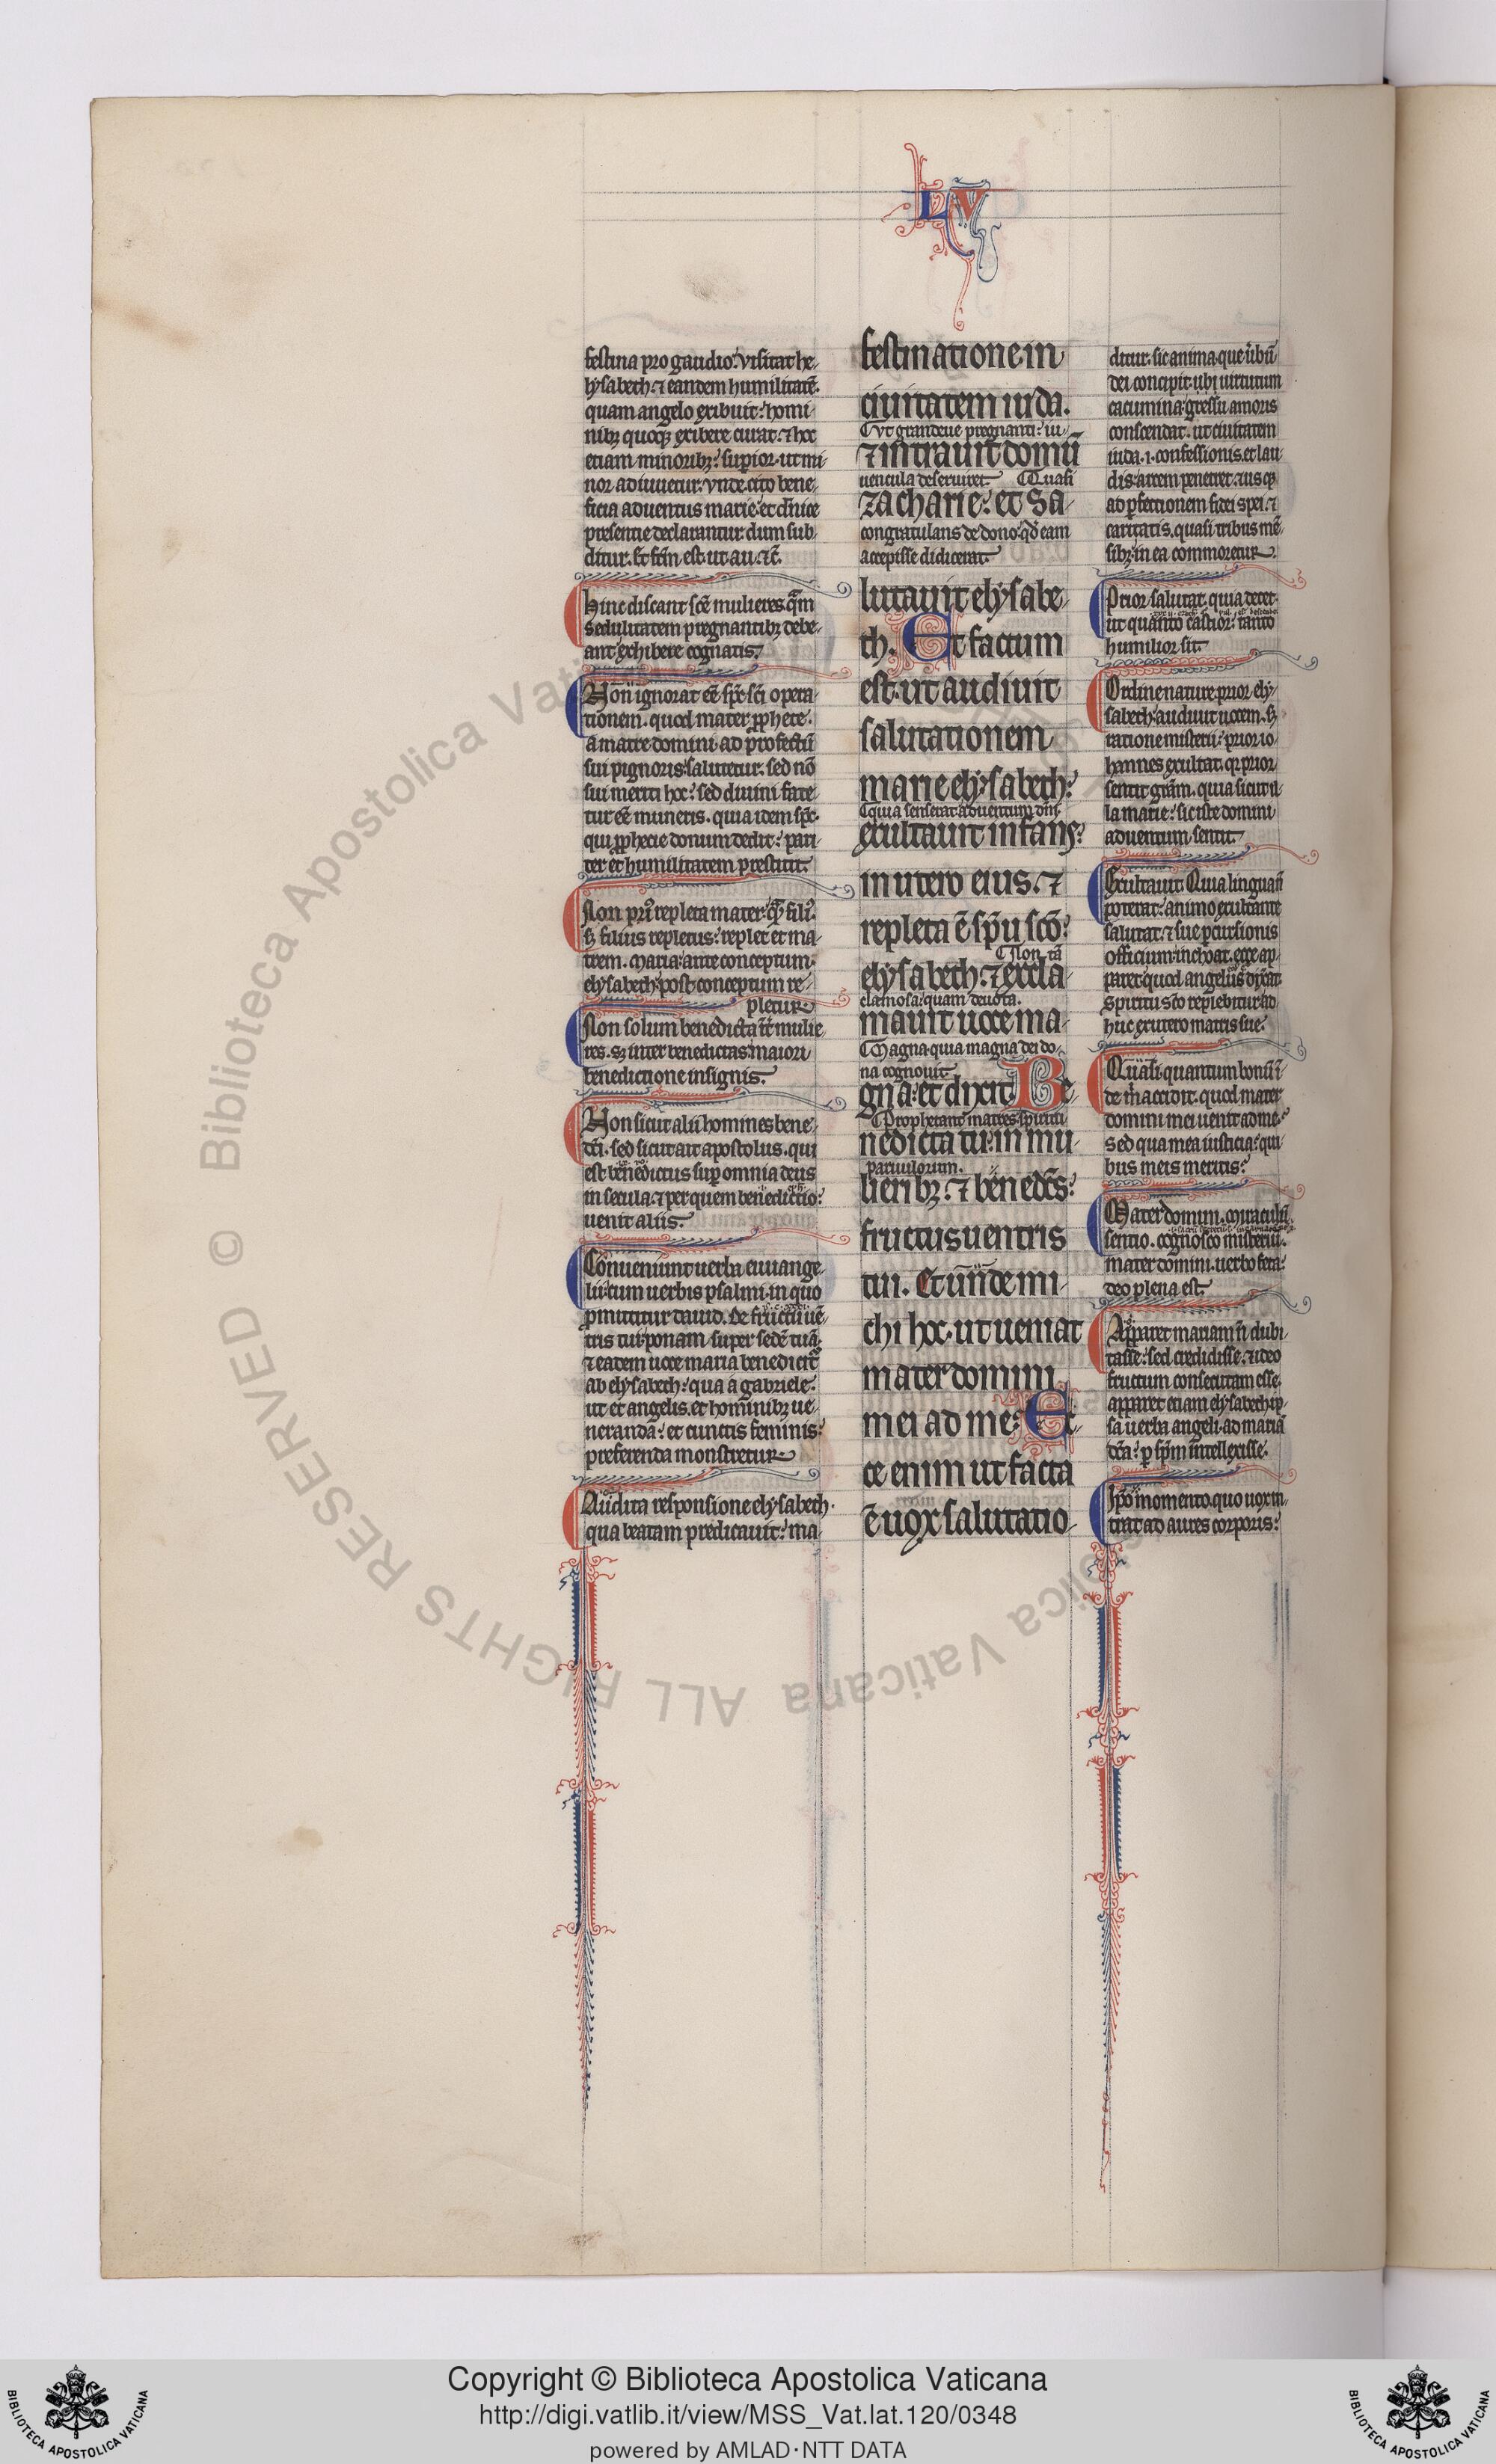 LV
festina pro gaudio: visitat he-
lysabeth. ⁊ eandem humilitatē.
quam angelo exibuit: homi-
nibꝫ quoqꝫ exibere curat. ⁊ hoc
etiam minoribꝫ: superior. ut mi-
nor adiuuetur. vnde cito bene-
ficia aduentus marie et dn̄ice
presentie declarantur dum sub-
ditur. Et fc̄m est. ut au. ⁊c̄.
Hinc discant sc̄e mulieres q̄m
sedulitatem pregnantibꝫ debe-
ant exhibere cognatis.
Non ignorat eē spc̄ sc̄i opera-
tionem. quod mater ꝓphete.
a matre domini ad profectū
sui pignoris salutetur. sed nō
sui meriti hoc: sed diuini fate-
tur eē muneris. quia idem spc̄.
qui ꝓphecie donum dedit: pari-
ter et humilitatem prestitit.
Non prꝰ repleta mater. qͣ filiꝰ.
sꝫ filius repletus: replet et ma-
trem. Maria ante conceptum.
elysabeth post conceptum re-
pletur.
Non solum benedicta int̄ mulie-
res. sꝫ inter benedictas maiori
benedictione insignis.
Non sicut alii homines bene-
dc̄i. sed sicut ait apostolus. qui
est benedictus suꝑ omnia deus
in secula. ⁊ per quem benedictio:
uenit aliis.
Conueniunt uerba euuange-
lii: cum uerbis psalmi. in quo
ꝓmittitur dauid. de fructu uē-
tris tui ponam super sedē tuā.
⁊ eadem uoce maria benedicit̄
ab elysabeth: qua a gabriele.
ut et angelis. et hominibꝫ ue-
neranda: et cunctis feminis:
preferenda monstretur.
Audita responsione elysabeth.
qua beatam predicauit: ma-
festinatione in
ciuitatem iuda.
Vt grandeue pregnanti: iu-
⁊ intrauit domū
uencula deseruiret. Quasi
zacharie: et sa-
congratulans de dono. qd̄ eam
accepisse didicerat.
lutauit elysabe-
th. Et factum
est. ut audiuit
salutationem
marie elysabeth:
quia senserat aduentum dn̄i.
exultauit infans:
in utero eius. ⁊
repleta ē sp̄u sc̄o:
Non tā
elysabeth. ⁊ excla-
clamosa: quam deuota.
mauit uoce ma-
Magna. quia magna dei do-
na cognouit
gna: et dixit. Be-
Prophetant matres spiritu
nedicta tu: in mu-
paruulorum.
lieribꝫ. ⁊ benedc̄s:
fructus uentris
tui. Et unde mi-
chi hoc. ut ueniat
mater domini
mei ad me: Ec-
ce enim ut facta
ē uox salutatio-
ditur. sic anima. que ūbū
dei concipit. ubi uirtutum
cacumina: gressu amoris
conscendat. ut ciuitatem
iuda. .i. confessionis. et lau-
dis: arcem penetret. ⁊ usqꝫ
ad ꝑfectionem fidei spei. ⁊
caritatis. quasi tribus mē-
sibꝫ in ea commoretur.
Prior salutat. quia decet.
ut quanto castior: tanto
humilior sit.
Ordine nature prior ely-
sabeth audiuit uocem. sꝫ
ratione misterii: prior io-
hannes exultat. qꝛ prior
sentit gr̄am. quia sicut il-
la marie: sic iste domini
aduentum sentit.
Exultauit. Quia lingua n̄
poterat: animo exultante
salutat. ⁊ sue ꝑcursionis
officium: inchoat. ecce ap-
paret quod angelus dixat.
spiritu sc̄o replebitur ad-
huc ex utero matris sue.
Quasi quantum bonū ī-
de m̄ accidit. quod mater
domini mei uenit ad me.
sed qua mea iusticia: qui-
bus meis meritis:
Mater domini. Miraculū
sentio. cognosco misteriū.
mater domini. uerbo feta:
deo plena est.
Apparet mariam n̄ dubi-
tasse: sed credidisse. ⁊ ideo
fructum consecutam esse.
apparet etiam elysabeth ip-
sa uerba angeli. ad mariā
dc̄a: ꝑ sp̄m intellexisse.
Ip̄o momento quo uox in-
trat ad aures corporis:
© Biblioteca Apostolica Vaticana ALL RIGHTS RESERVED
Copyright © Biblioteca Apostolica Vaticana
http://digi.vatlib.it/view/MSS_Vat.lat.120/0348
powered by AMLAD·NTT DATA
BIBLIOTECA APOSTOLICA VATICANA
BIBLIOTECA APOSTOLICA VATICANA